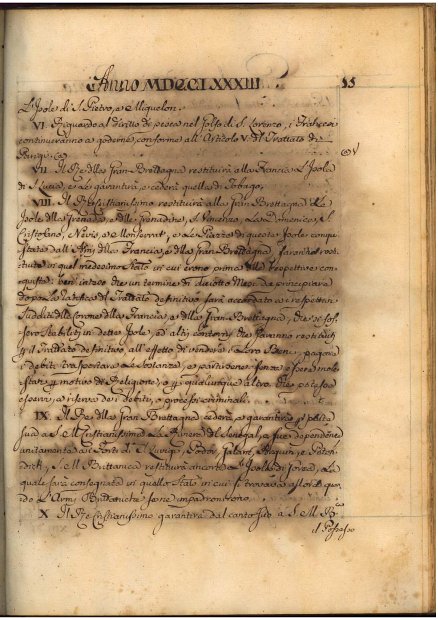 Anno MDCCLXXXIII 55
L'Isole di S. Pietro, e Miquelon.
VI. Riguardo al diritto di pesca nel Golfo di S. Lorenzo, i Francesi
continueranno a goderne conforme all'Articolo V. del Trattato di
Parigi.
VII. Il Re della Gran Brettagna restituirà alla Francia L'Isola
di S. Lucia, e Le garantirà, e cederà quella di Tobago.
VIII. Il Re Cristianissimo restituirà alla Gran Brettagna Le
Isole della Grenada, e delle Grenadine, S. Vincenzo, La Domenica, S.
Cristofano, Nevis, e Monserrat, e Le Piazze di queste Isole conqui
state dall'Armi della Francia, e della Gran Brettagna, saranno rest
tuite in quel medesimo stato in cui erono prima della respettiva con
quista: ben inteso che un termine di diciotto Mesi da principiare
dopo La Ratifica del Trattato definitivo sarà accordato ai respettivi
Sudditi delle Corone della Francia, e della Gran Brettagna, che si fos
sero stabiliti in dette Isole, ed altri contorni, che saranno restituiti
il Trattato definitivo, all'effetto di vendere i Loro Beni, pagare
i debiti, trasportare Le sostanze, e partirvene senza essere mole
stati motivo di Religione, o qualunque altro che potesse
esservi, a riserva dei debiti, o processi criminali.
IX. Il Re della Gran Brettagna cederà, e garantirà
sua a S. M. Cristianissima La Riviera del Senegal, e sue dependenze
unitamente ai Forti di S. Luvigi, Podor, Galam, Arguin, e Porten
drich, S. M. Brittanica restituirà ancora L'Isola di Gorea, La
quale sarà consegnata in quello Stato in cui si trovava allora quan
do L'Armi Brittaniche sene impadronirono.
X. Il Re Cristianissimo garantirà dal canto suo a S. M. B.ca
il Possesso